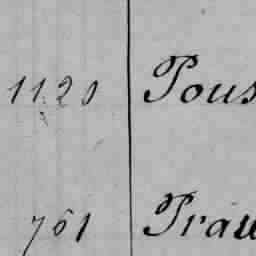 1120 Pous
761 Trau